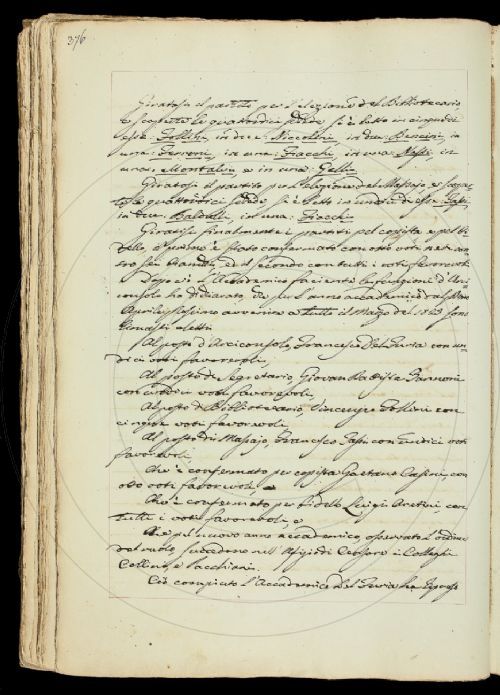 376
Giratosi il partito per l'elezione del Bibliotecario,
e scoperte le quattordici schede si è letto in cinque di
esse: Follini, in due: Niccolini, in due: Bencini, in
una: Ferroni, in una: Fiacchi, in una: Nesti in
una: Montalvi e in una: Gelli.
Giratosi il partito per l'elezione del Massajo, e
quattordici schede si è letto in undici di esse:
in due: Baldelli, in una: Fiacchi
Giratisi finalmente i partiti pel copista e pel Bi-
dello, il primo è stato confermato con otto voti neri con-
tro sei bianchi, ed il secondo con tutti i voti favorevoli
Dopo ciò l'Accademico facente le funzioni d'Arci-
consolo ha dichiarato, che per l'anno accademico dal
Aprile prossimo avvenire a tutto il Marzo del 1823 sono
rimasti eletti
Al posto d'Arciconsolo, Francesco Del Furia con un-
dici voti favorevoli,
Al posto di Segretario, Giovan Batista Zannoni
con voti favorevoli,
Al posto di Bibliotecario, Vincenzo Follini con
cinque voti favorevoli,
Al posto di Massajo, Francesco con undici voti
favorevoli,
Che è confermato per copista Gaetano con
otto voti favorevoli, e
Che è confermato per bidello Luigi Aretini con
tutti i voti favorevoli, e
Che pel nuovo anno accademico, osservato l'ordine
del ruolo, succedono nell'Ufizio di Censore i Colleghi
Collini, e Sacchiani.
Ciò compiuto l'Accademico Del Furia ha